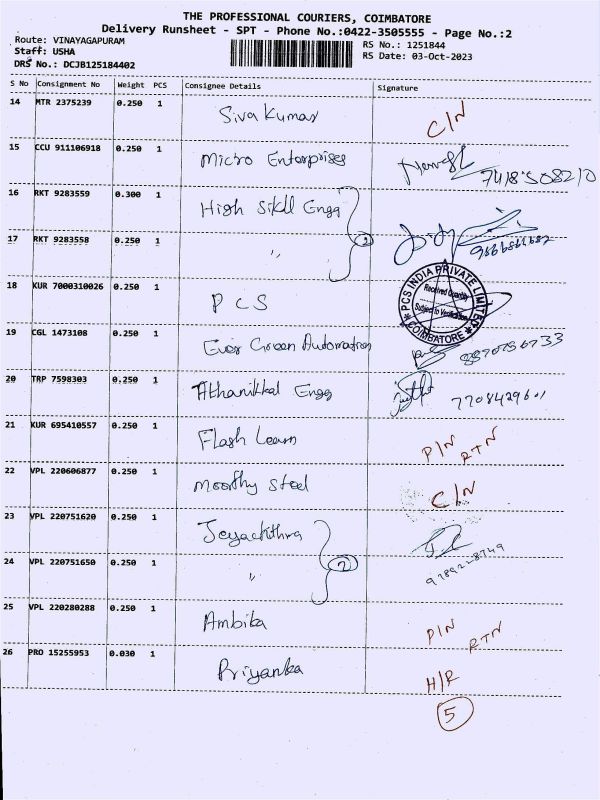 THE PROFESSIONAL COURIERS, COIMBATORE
Delivery Runsheet - SPT - Phone No.:0422-3505555 - Page No.:2
Route: VINAYAGAPURAM
Staff: USHA
DRS No.: DCJB125184402
RS No.: 1251844
RS Date: 03-Oct-2023
S No Consignment No Weight PCS Consignee Details Signature
14 MTR 2375239 0.250 1 Siva Kumar C/N
15 CCU 911106918 0.250 1 Micro Enterprises 7418508210
16 RKT 9283559 0.300 1 High Skill Engg
17 RKT 9283558 0.250 1 " 2
18 KUR 7000310026 0.250 1 PCS
PCS INDIA PRIVATE LIMITED
Received Quantity
Subject to Verification
COIMBATORE
19 CGL 1473108 0.250 1 Ever Green Automation
20 TRP 7598303 0.250 1 Athanikkal Engg 7708429601
21 KUR 695410557 0.250 1 Flash Learn P/N RTN
22 VPL 220606877 0.250 1 Moorthy Steel C/N
23 VPL 220751620 0.250 1 Jeyachithra
24 VPL 220751650 0.250 1 " 2
25 VPL 220280288 0.250 1 Ambika P/N RTN
26 PRO 15255953 0.030 1 Priyanka H/R
5